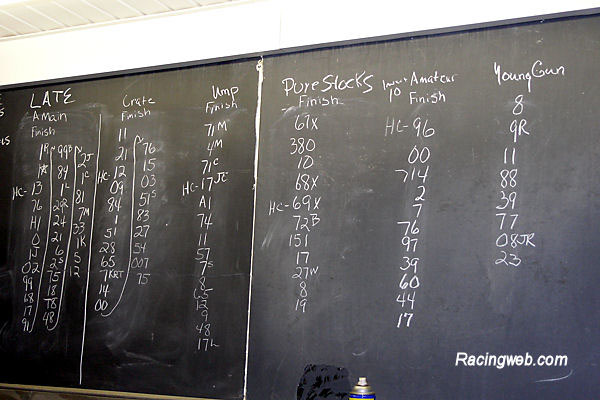 LATE
A Main
Finish
HC-13
76
H1
0
15
02
99
68
17
91
99B
84
1C
2R
24
21
6
23
75
18
T8
48
2J
7C
81
7M
33
1K
5
12
Crate
Finish
11
21
HC-12
09
84
1
51
28
65
7KRT
14
00
76
15
03
51
83
27
54
007
75
Ump
Finish
71M
4M
71C
HC-17JC
A1
74
11
57
75
8
C5
12
9
48
17L
Pure Stocks
Finish
67X
380
10
68X
HC-69X
72B
151
17
27W
8
19
Amateur
Finish
HC-96
00
714
2
7
76
97
39
60
44
17
Young Gun
8
9R
11
88
39
77
08JR
23
Racingweb.com